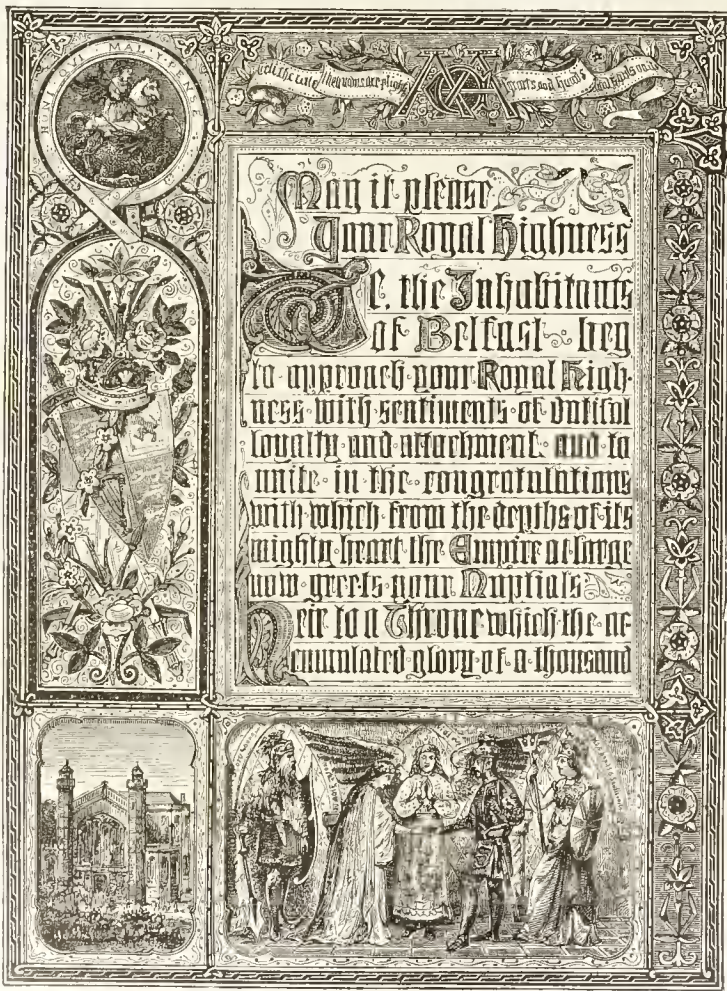 HONI · QUI · MAL · Y · PENSE
hearts and hands
May it please
Your Royal Highness
We, the Inhabitants
of Belfast beg
to approach your Royal High-
ness with sentiments of dutiful
loyalty and attachment and to
unite in the congratulations
with which from the depths of its
mighty heart the Empire at large
now greets your Nuptials
Heir to a Throne which the ac
cumulated glory of a thousand